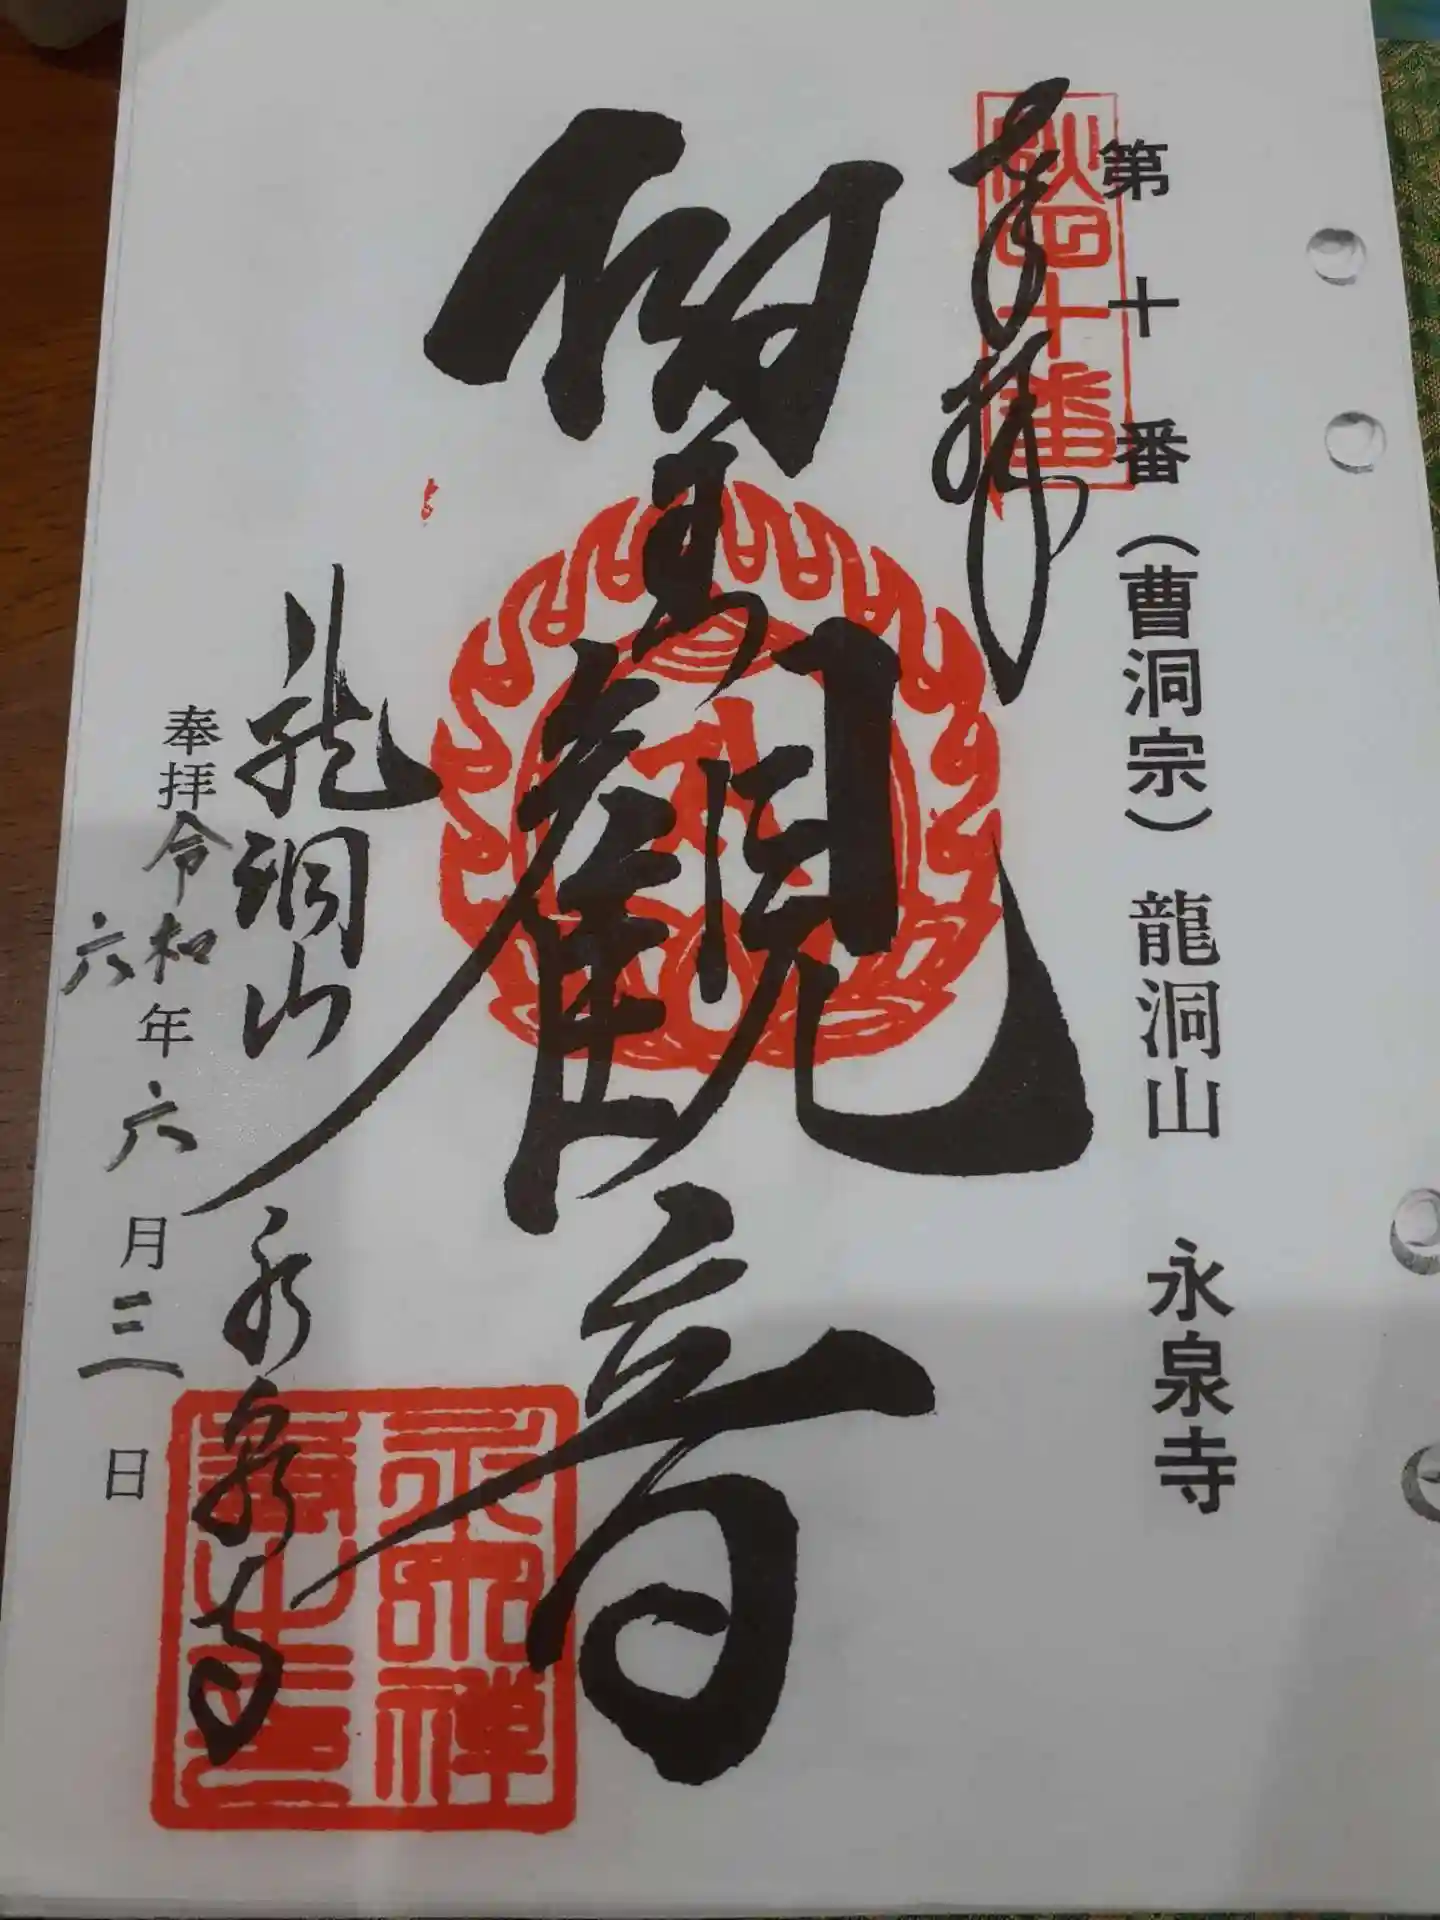 第十番(曹洞宗) 龍洞山 永泉寺
秋田十番
奉拝
聖観音
龍洞山 永泉寺
奉拝 令和六年六月三日